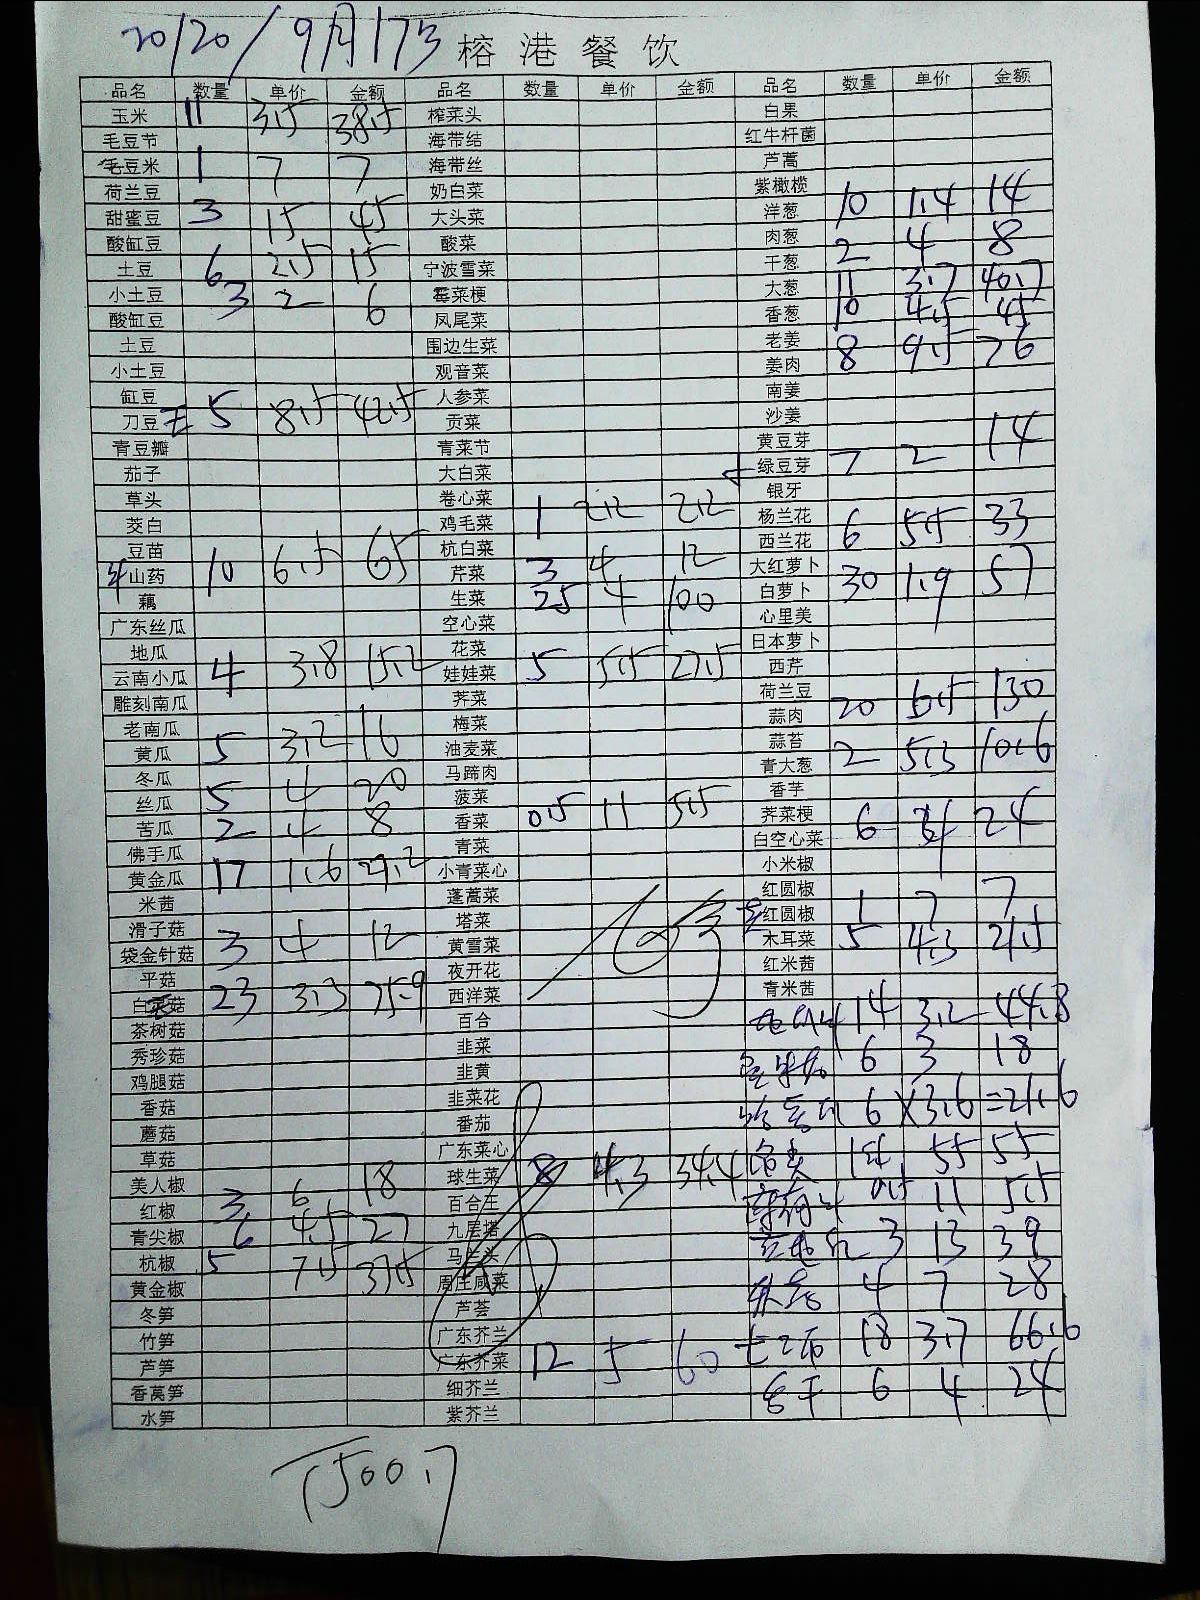 2020/9月17号 榕港餐饮
品名 数量 单价 金额 品名 数量 单价 金额 品名 数量 单价 金额
玉米 11 3.5 38.5 榨菜头 白果
毛豆节 海带结 红牛杆菌
毛豆米 1 7 7 海带丝 芦蒿
荷兰豆 奶白菜 紫橄榄
甜蜜豆 3 15 45 大头菜 洋葱 10 1.4 14
酸缸豆 酸菜 肉葱 2 4 8
土豆 6 2.5 15 宁波雪菜 干葱
小土豆 3 2 6 霉菜梗 大葱 11 3.7 40.7
酸缸豆 凤尾菜 香葱 10 4.5 45
土豆 围边生菜 老姜
小土豆 观音菜 姜肉 8 9.5 76
缸豆 人参菜 南姜
刀豆 5 8.5 42.5 贡菜 沙姜
青豆瓣 青菜节 黄豆芽
茄子 大白菜 绿豆芽 7 2 14
草头 卷心菜 银牙
茭白 鸡毛菜 1 2.2 2.2 杨兰花
豆苗 杭白菜 西兰花 6 5.5 33
山药 10 6.5 65 芹菜 3 4 12 大红萝卜
藕 生菜 25 4 100 白萝卜 30 1.9 57
广东丝瓜 空心菜 心里美
地瓜 花菜 日本萝卜
云南小瓜 4 3.8 15.2 娃娃菜 5 5.5 27.5 西芹
雕刻南瓜 荠菜 荷兰豆
老南瓜 梅菜 蒜肉 20 6.5 130
黄瓜 5 3.2 16 油麦菜 蒜苔
冬瓜 马蹄肉 青大葱 2 5.3 10.6
丝瓜 5 4 20 菠菜 香芋
苦瓜 2 4 8 香菜 0.5 11 5.5 荠菜梗
佛手瓜 青菜 白空心菜 6 4 24
黄金瓜 17 1.6 27.2 小青菜心 小米椒
米茜 蓬蒿菜 红圆椒
滑子菇 塔菜 红圆椒 1 7 7
袋金针菇 3 4 12 黄雪菜 木耳菜 5 4.3 21.5
平菇 夜开花 红米茜
白菇 23 3.3 75.9 西洋菜 青米茜
茶树菇 百合 14 3.2 44.8
秀珍菇 韭菜 6 3 18
鸡腿菇 韭黄
香菇 韭菜花 6×3.6=21.6
蘑菇 番茄
草菇 广东菜心 55 55
美人椒 球生菜 8 4.3 34.4
红椒 3 6 18 百合王 0.5 11 5.5
青尖椒 6 4.5 27 九层塔 3 13 39
杭椒 5 7.5 37.5 马兰头
黄金椒 周庄咸菜 4 7 28
冬笋 芦荟
竹笋 广东芥兰 18 3.7 66.6
芦笋 广东芥菜 12 5 60
香莴笋 细芥兰 6 4 24
水笋 紫芥兰